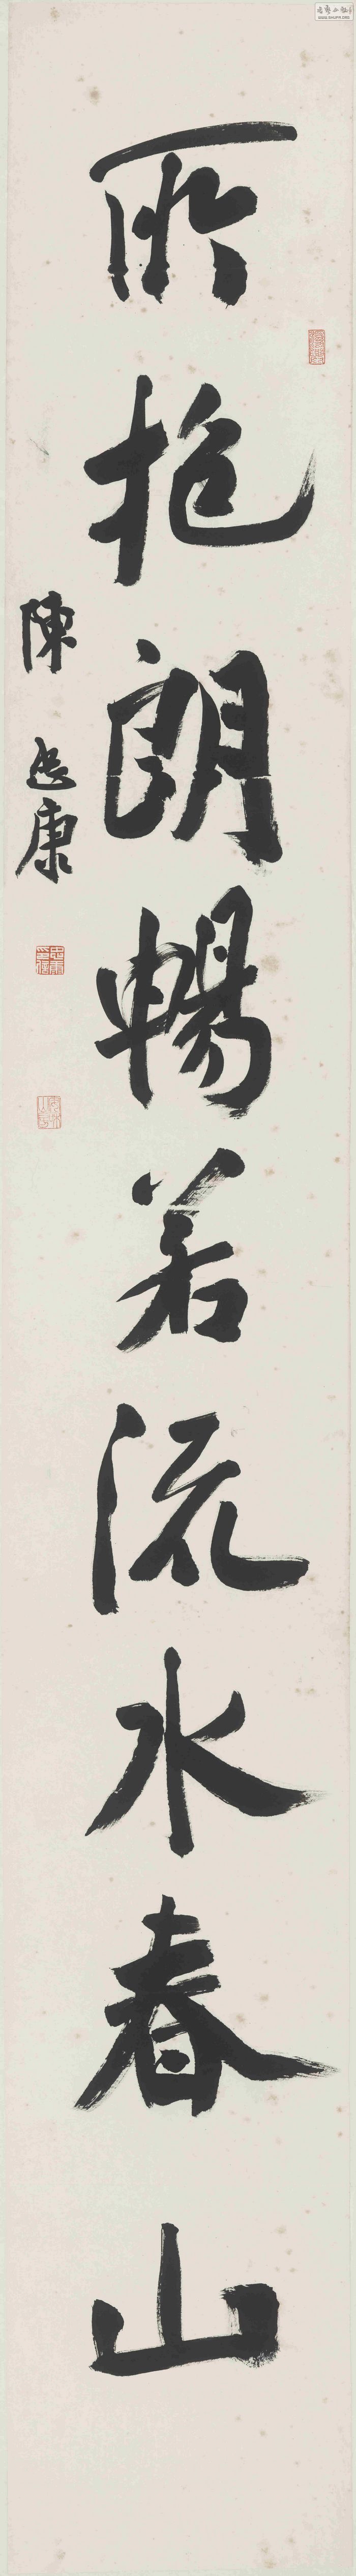 所抱朗暢若流水春山
陳忠康